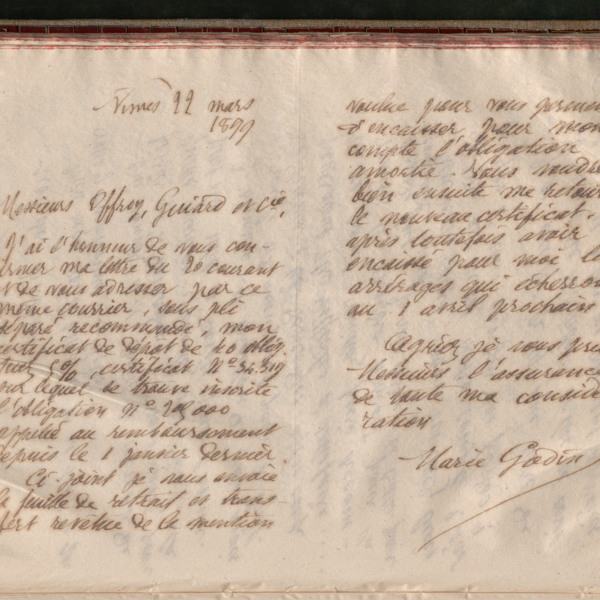 Nimes 22 mars
1899
Messieurs Offroy, Guiard et Cie,
J'ai l'honneur de vous con-
firmer ma lettre du 20 courant
et de vous adresser par ce
même courrier, sous pli
séparé recommandé, mon
certificat de dépot de 40 oblig.
5%, certificat N° 34.319
sur lequel se trouve inscrite
l'obligation N°
appelée au remboursement
depuis le 1 janvier dernier.
Ci-joint je vous envoie
la feuille de retrait et trans-
fert revêtue de la mention
voulue pour vous permet
d'encaisser pour mon
compte l'obligation
amortie. Vous voudre
bien ensuite me retour
le nouveau certificat.
après toutefois avoir
encaissé pour moi le
arrérages qui écherron
au 1 avril prochain
Agréez je vous prie
Messieurs l'assurance
de toute ma considé
ration
Marie Godin